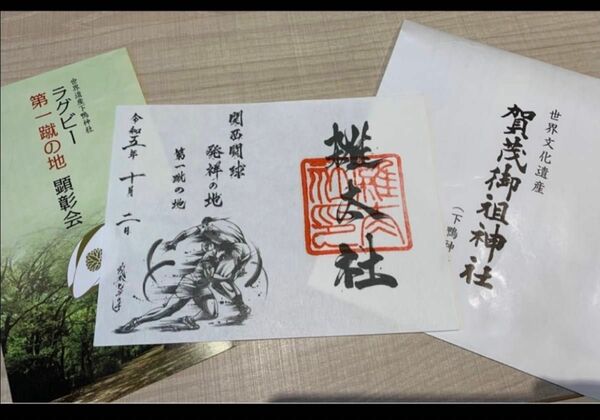 世界遺産下鴨神社
ラグビー
第一蹴の地 顕彰会
関西闘球
発祥の地
第一蹴の地
令和五年 十月 二日
雑太社
世界文化遺産
賀茂御祖神社
(下鴨神